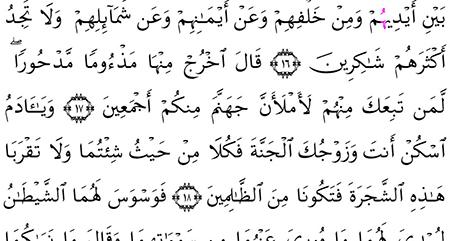 بَيْنِ أَيْدِيهُمْ وَمِنْ خَلْفِهِمْ وَعَنْ أَيْمَٰنِهِمْ وَعَن شَمَآئِلِهِمْ وَلَا تَجِدُ
أَكْثَرَهُمْ شَٰكِرِينَ ١٦ قَالَ ٱخْرُجْ مِنْهَا مَذْءُومًا مَّدْحُورًاۖ
لَّمَن تَبِعَكَ مِنْهُمْ لَأَمْلَأَنَّ جَهَنَّمَ مِنكُمْ أَجْمَعِينَ ١٧ وَيَٰٓـَٔادَمُ
ٱسْكُنْ أَنتَ وَزَوْجُكَ ٱلْجَنَّةَ فَكُلَا مِنْ حَيْثُ شِئْتُمَا وَلَا تَقْرَبَا
هَٰذِهِ ٱلشَّجَرَةَ فَتَكُونَا مِنَ ٱلظَّٰلِمِينَ ١٨ فَوَسْوَسَ لَهُمَا ٱلشَّيْطَٰنُ